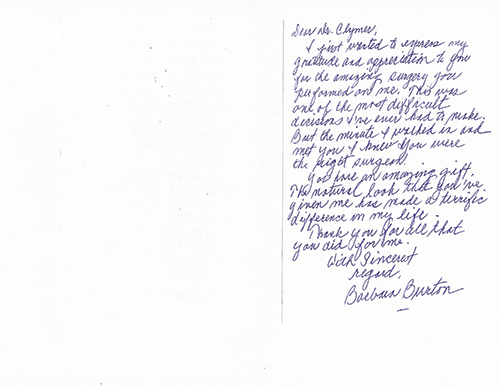 Dear Dr. Clymer,
I just wanted to express my
gratitude and appreciation to you
for the amazing surgery you
performed on me. This was
one of the most difficult
decisions I've ever had to make.
But the minute I walked in and
met you I knew you were
the right surgeon!
You have an amazing gift.
The natural look that you've
given me has made a terrific
difference in my life.
Thank you for all that
you did for me.
With Sincerest
regard,
Barbara Burton